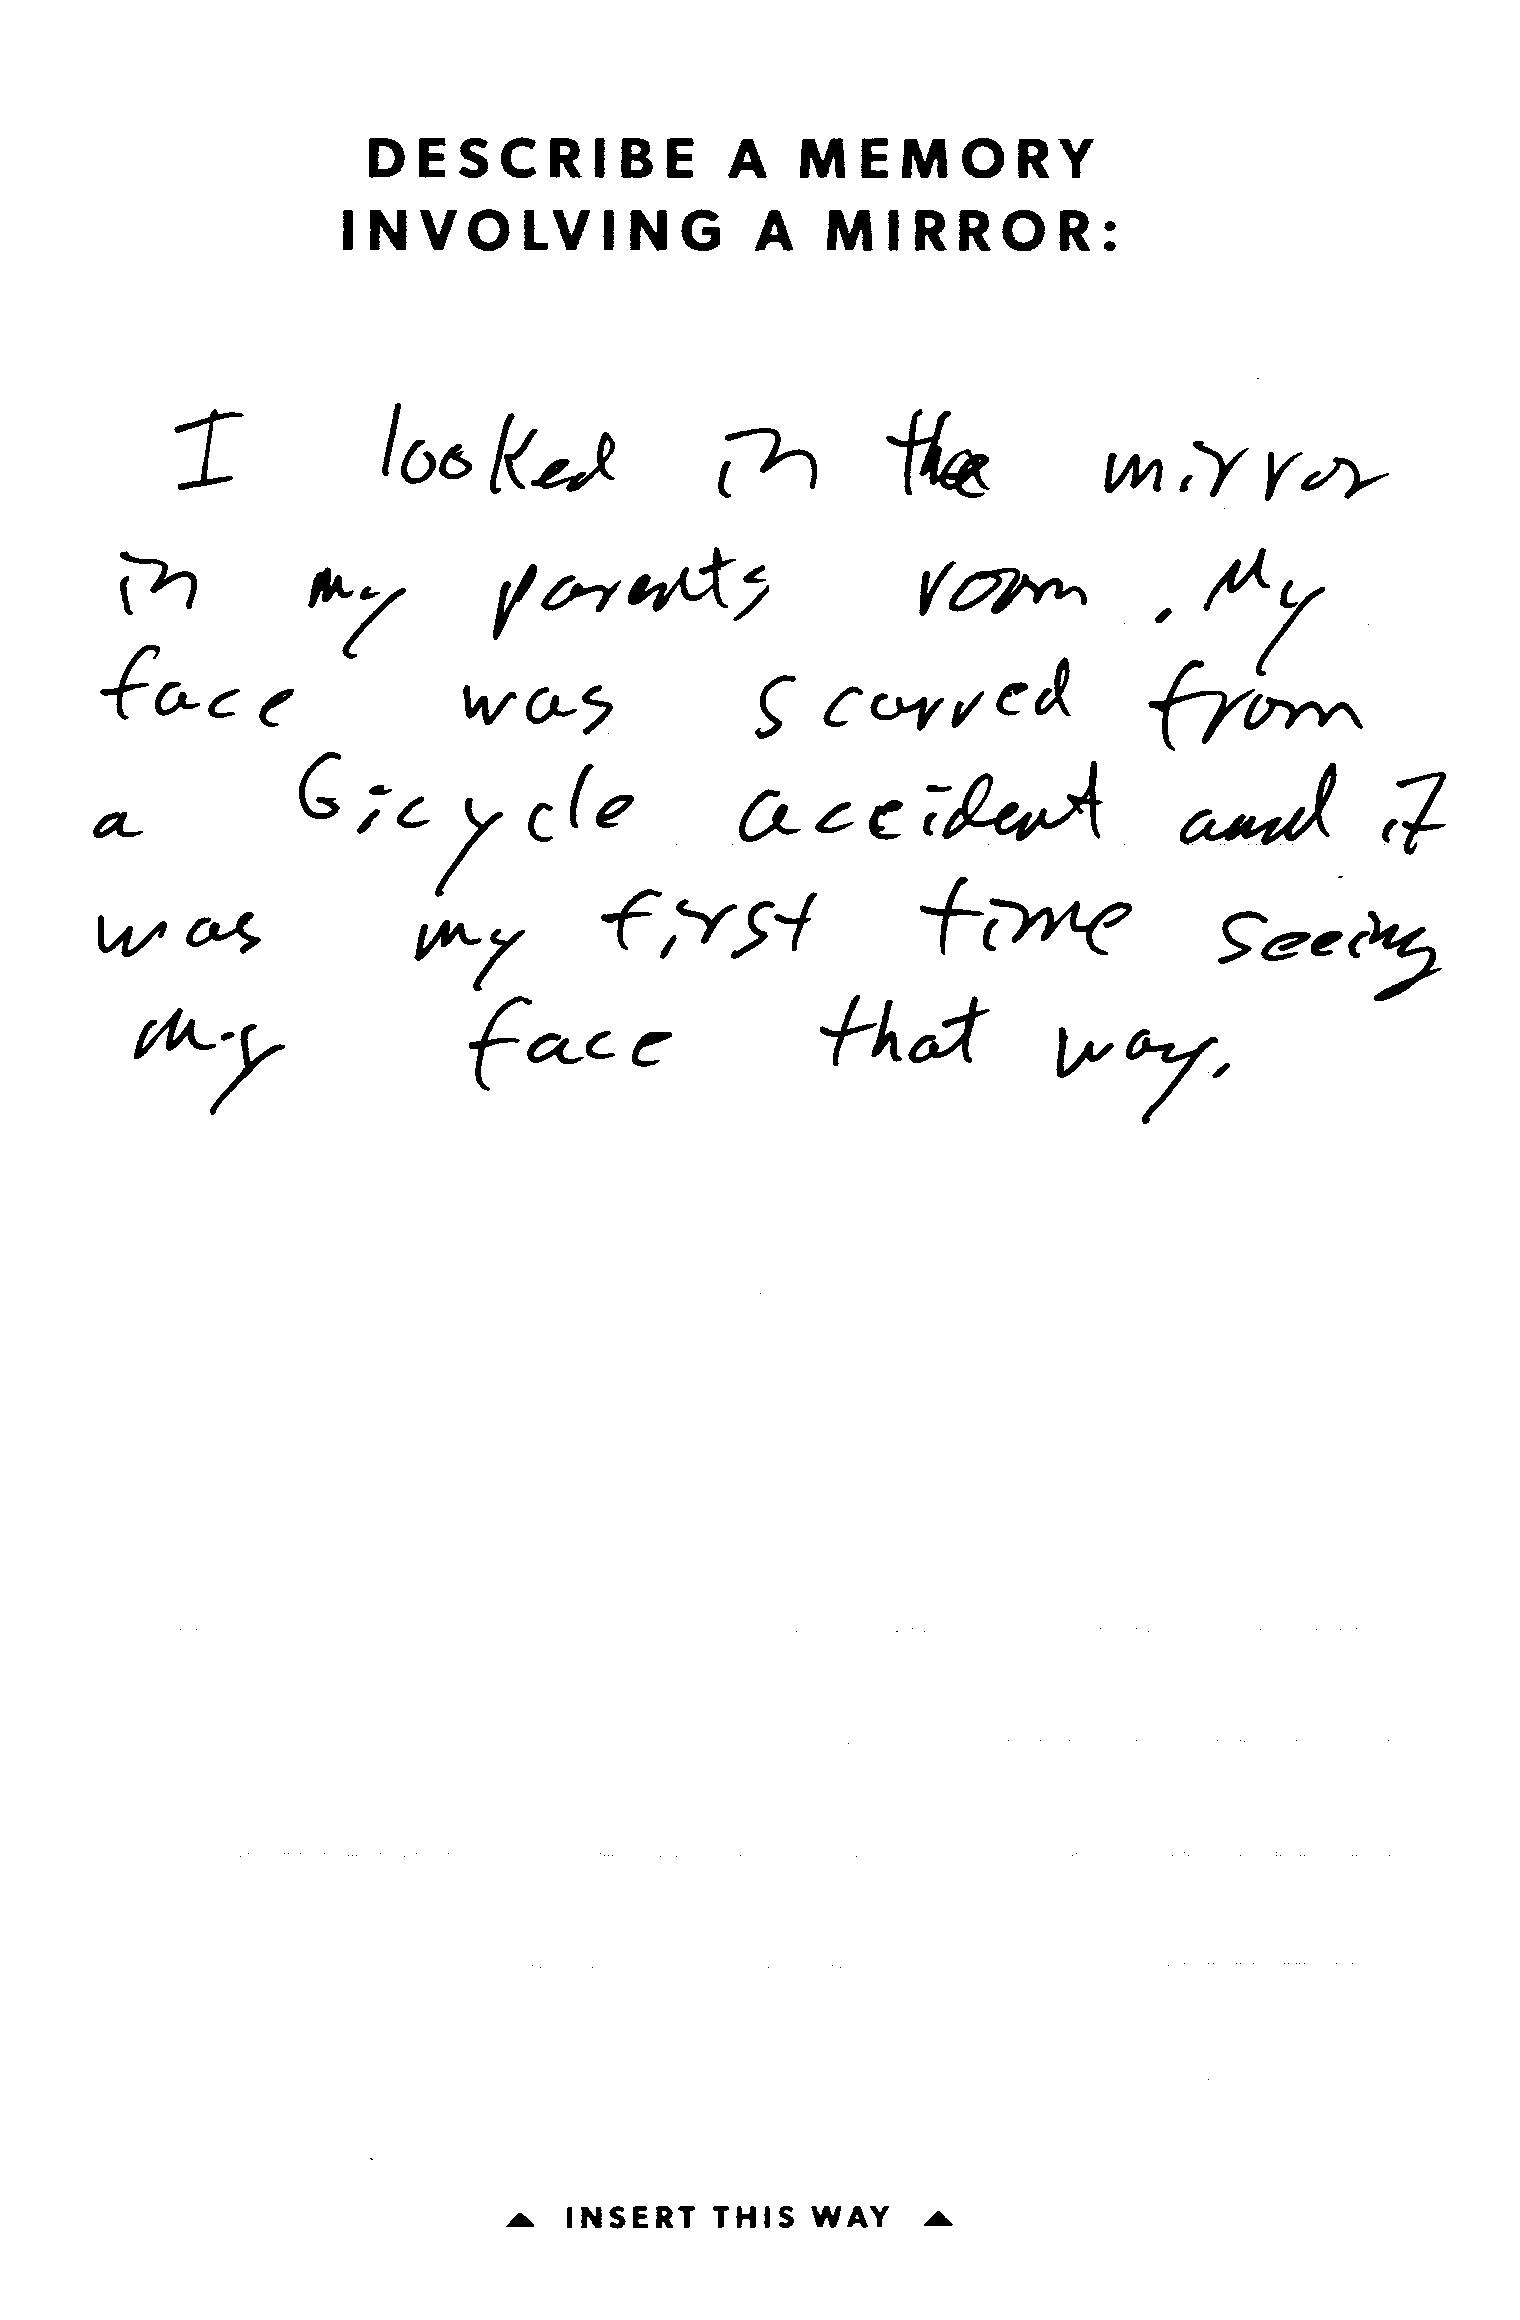 DESCRIBE A MEMORY
INVOLVING A MIRROR:
I looked in the mirror
in my parents room. My
face was scarred from
a bicycle accident and it
was my first time seeing
my face that way.
▲ INSERT THIS WAY ▲